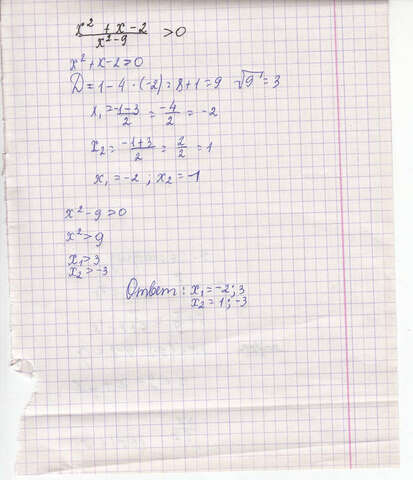 x² + x - 2 / x² - 9 > 0
x² + x - 2 > 0
D = 1 - 4 · (-2) = 8 + 1 = 9 √9 = 3
x₁ = -1-3 / 2 = -4 / 2 = -2
x₂ = -1+3 / 2 = 2 / 2 = 1
x₁ = -2 ; x₂ = 1
x² - 9 > 0
x² > 9
x₁ > 3
x₂ > -3
Ответ: x₁ = -2; 3
x₂ = 1; -3